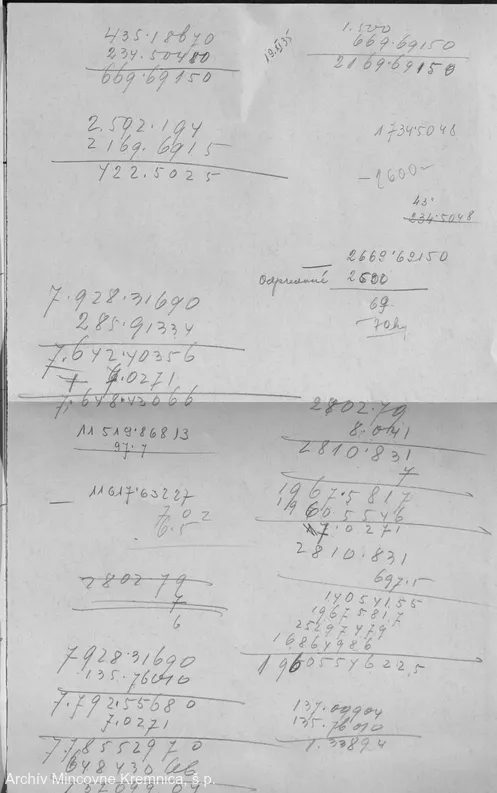 435.18670
234.50480
669.69150
1.500
669.69150
2169.69150
2.592.194
2169.6915
422.5025
1734.5048
-1600-
43'
234.5048
2669.69150
Odpredané 2600
69
70 kg
7.928.31690
285.91334
7.642.40356
7.0271
7.648.43066
11519.86813
97.7
11617.63227
702
6.5
2802.79
8.041
2810.831
7
1967.5817
1960.5546
7.0271
2810.831
697.5
14054155
19675817
25297479
16864986
1960554622,5
2802 79
7
6
7928.31690
135.76010
7.792.55680
7.0271
7.785529 70
137.09904
135.76010
1.33894
Archív Mincovne Kremnica, š.p.